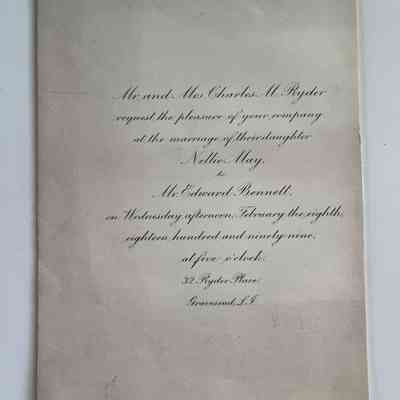 Mr. and Mrs. Charles M. Ryder
request the pleasure of your company
at the marriage of their daughter
Nellie May,
to
Mr. Edward Bennett,
on Wednesday afternoon, February the eighth,
eighteen hundred and ninety-nine,
at five o'clock.
32 Ryder Place
Gravesend, L.I.